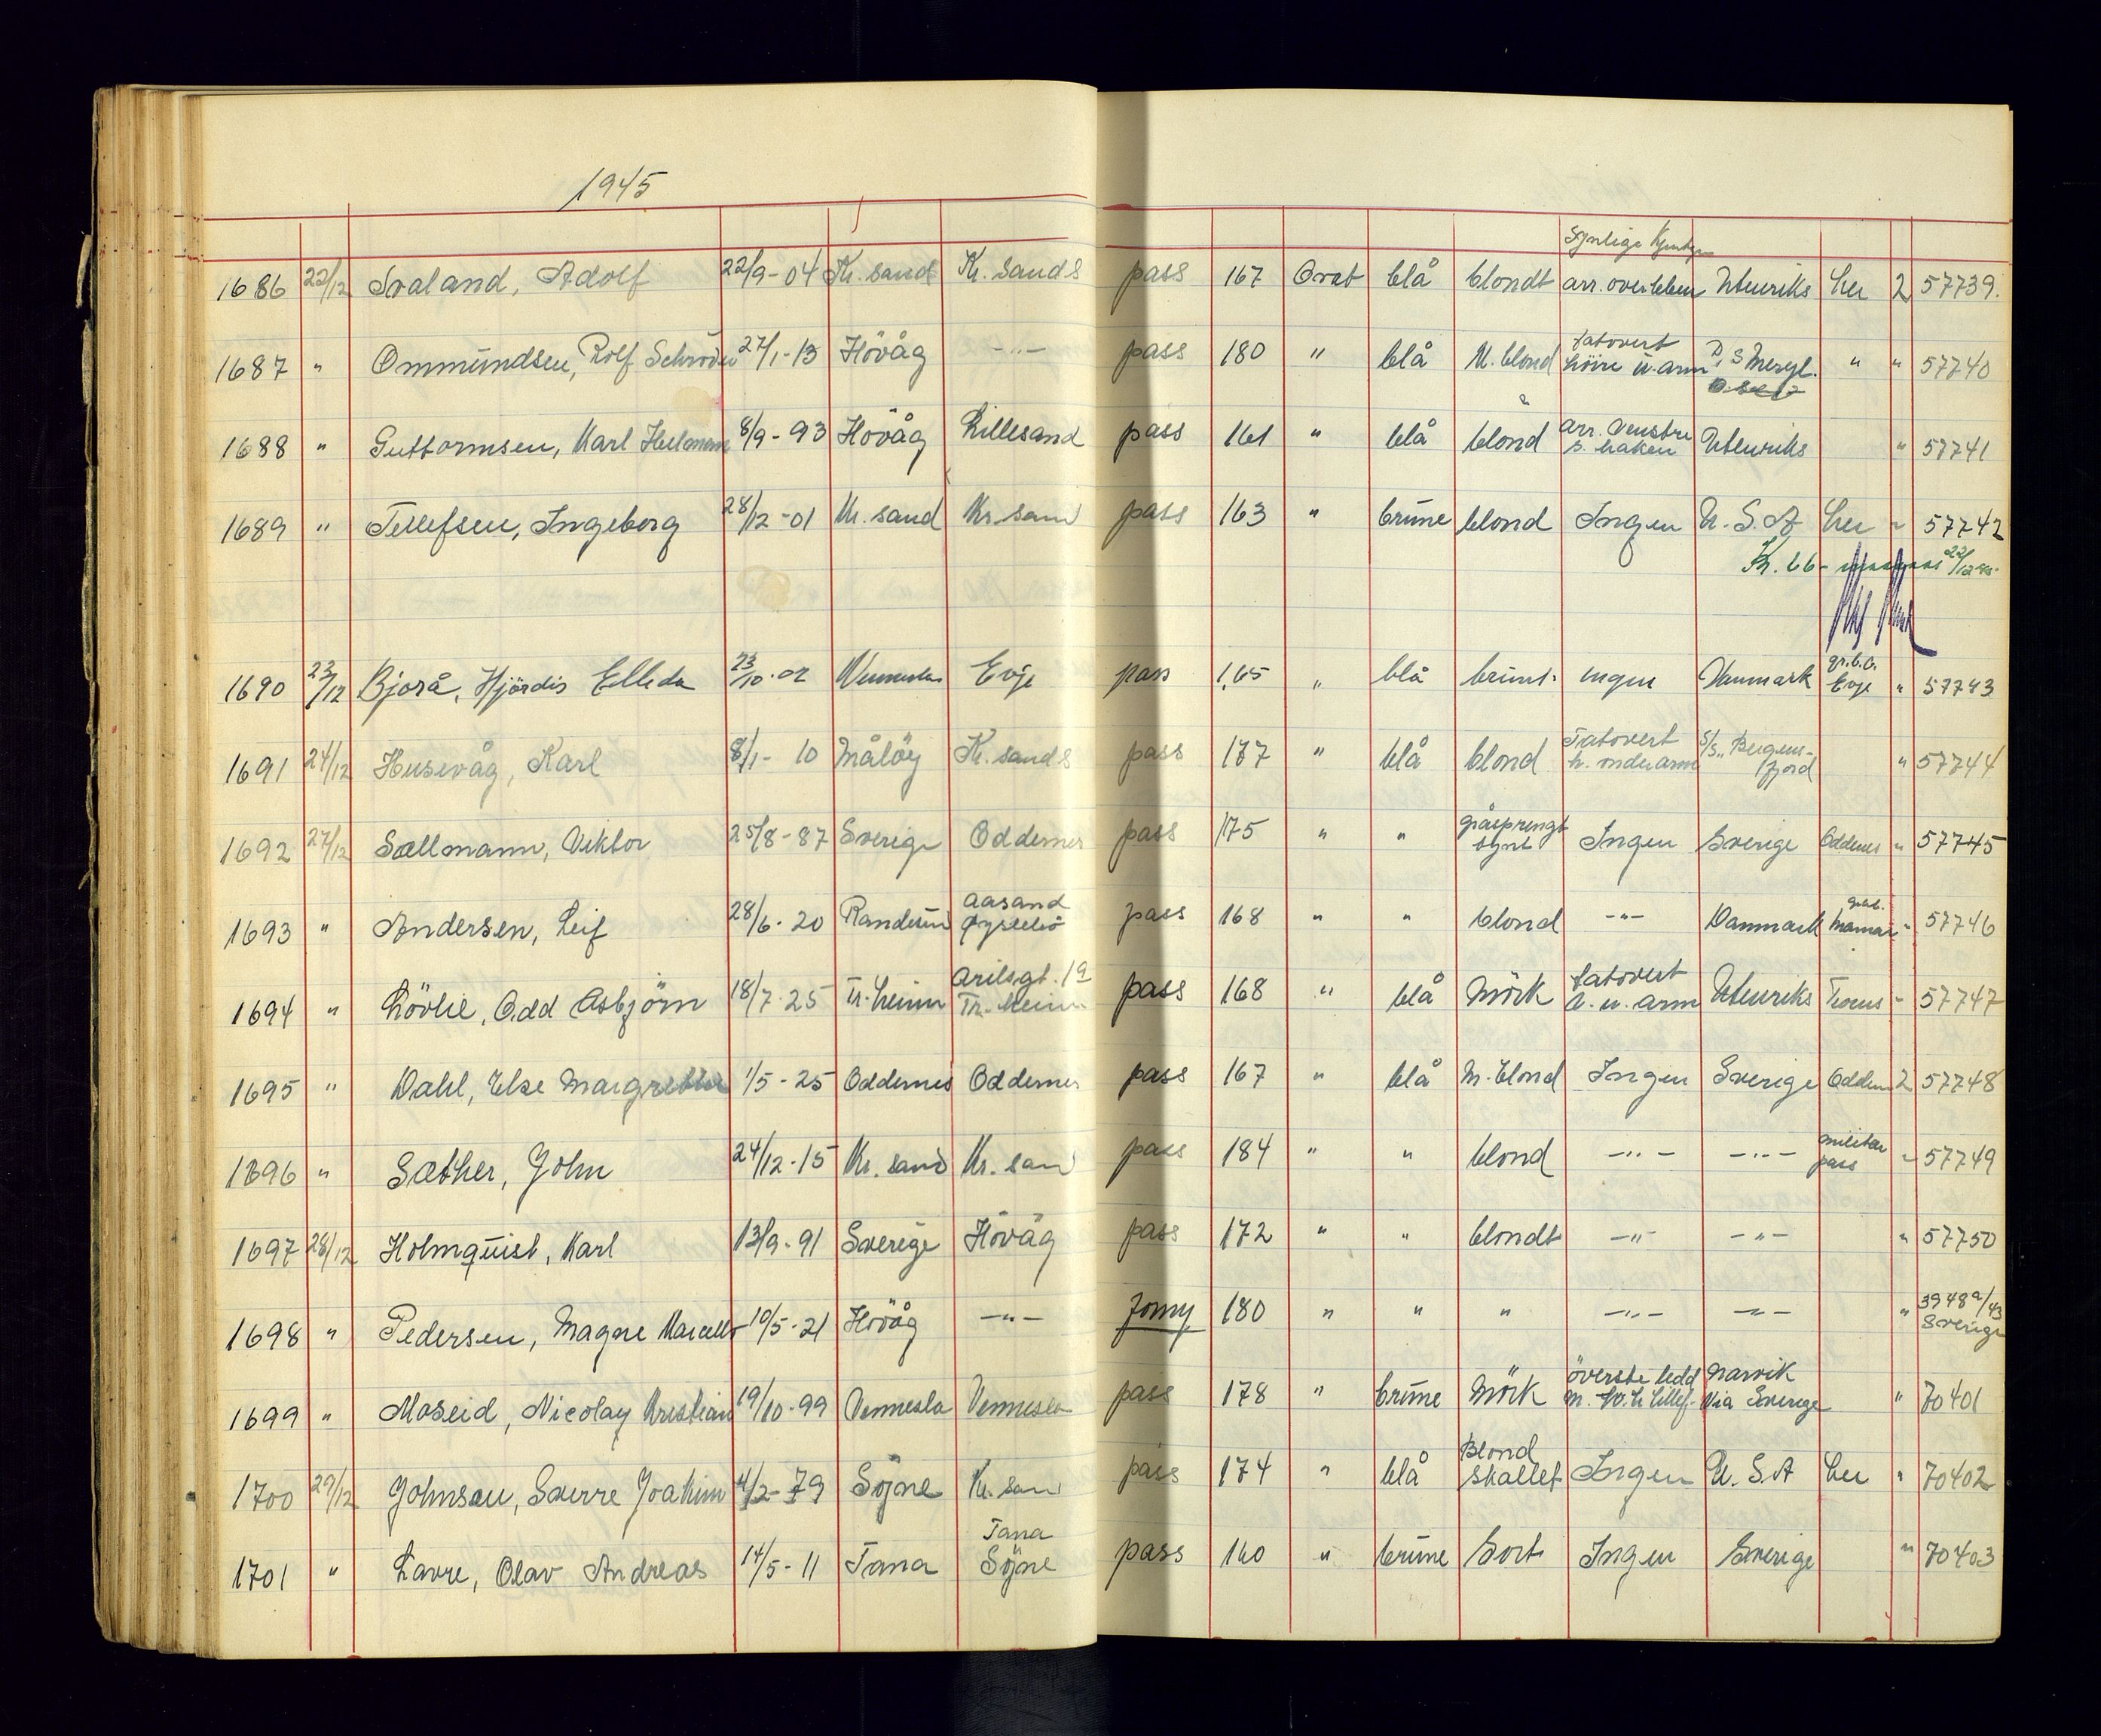 1945
Synlige
1686 22/12 Svaland, Adolf 22/9-04 Kr. sand Kr. sands pass 167 Ovat blå blondt arr. overleben Utenriks her 2 57739.
1687 " Ommundsen, Rolf Schrøder 27/1-13 Höväg -"- pass 180 " blå M. blond tatovert höire u. arm D/S Meryl. " " 57740
1688 " Guttormsen, Karl 8/9-93 Höväg Lillesand pass 161 " blå blond arr. venstre s. haken Utenriks " 57741
1689 " Tellefsen, Ingeborg 28/12-01 Kr. sand Kr. sand pass 163 " brune blond Ingen U.S.A her " 57742
Kr. 66- 22/12 45.
1690 23/12 Bjorå, Hjördis Elleda 23/10-02 Vennesla Evje pass 165 " blå brunt. ingen Danmark Evje " 57743
1691 24/12 Husevåg, Karl 8/1-10 Målöy Kr. sands pass 177 " blå blond Tatovert h. underarm S/S. Bergens-fjord " 57744
1692 27/12 Sællmann, Viktor 25/8-87 Sverige Oddernes pass 175 " " gråsprengt Ingen Sverige Oddernes " 57745
1693 " Andersen, Leif 28/6-20 Randesund Aasand pass 168 " " blond -"- Danmark " 57746
1694 " Lövlie, Odd Asbjörn 18/7-25 Tr. heim Arilsgt. 1a Tr. heim pass 168 " blå Mörk tatovert u. arm Utenriks " 57747
1695 " Dahl, Else Margrethe 1/5-25 Oddernes Oddernes pass 167 " blå M. blond Ingen Sverige Oddernes 2 57748
1696 " Sæther, John 24/12-15 Kr. sand Kr. sand pass 184 " " blond -"- -"- militær pass " 57749
1697 28/12 Holmquist, Karl 13/9-91 Sverige Höväg pass 172 " " blondt -"- -"- " 57750
1698 " Pedersen, Magne Marcello 10/5-21 Höväg -"- 180 " " " -"- -"- " 3948a/43 Sverige
1699 " Moseid, Nicolay Kristian 19/10-99 Vennesla Vennesla pass 178 " brune Mörk överste ledd Narvik via Sverige " 70401
1700 29/12 Johnsen, Sverre Joakim 4/2-79 Söjne Kr. sand pass 174 " blå Blond skallet Ingen U.S.A her " 70402
1701 " Lavre, Olav Andreas 14/5-11 Tana Tana Söjne pass 160 " brune Sort Ingen Sverige " 70403